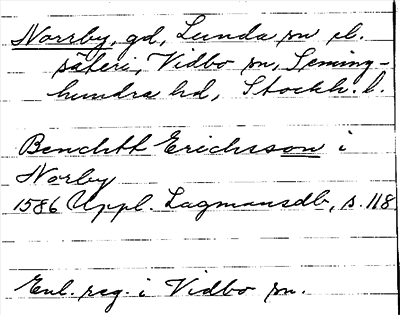 Norrby, gd, Lunda sn el.
säteri, Vidbo sn, Seming-
hundra hd, Stockh. l.
Benchtt Erichsson i
Norby
1586 Uppl. Lagmansdb, s. 118
Enl. reg. i Vidbo sn.